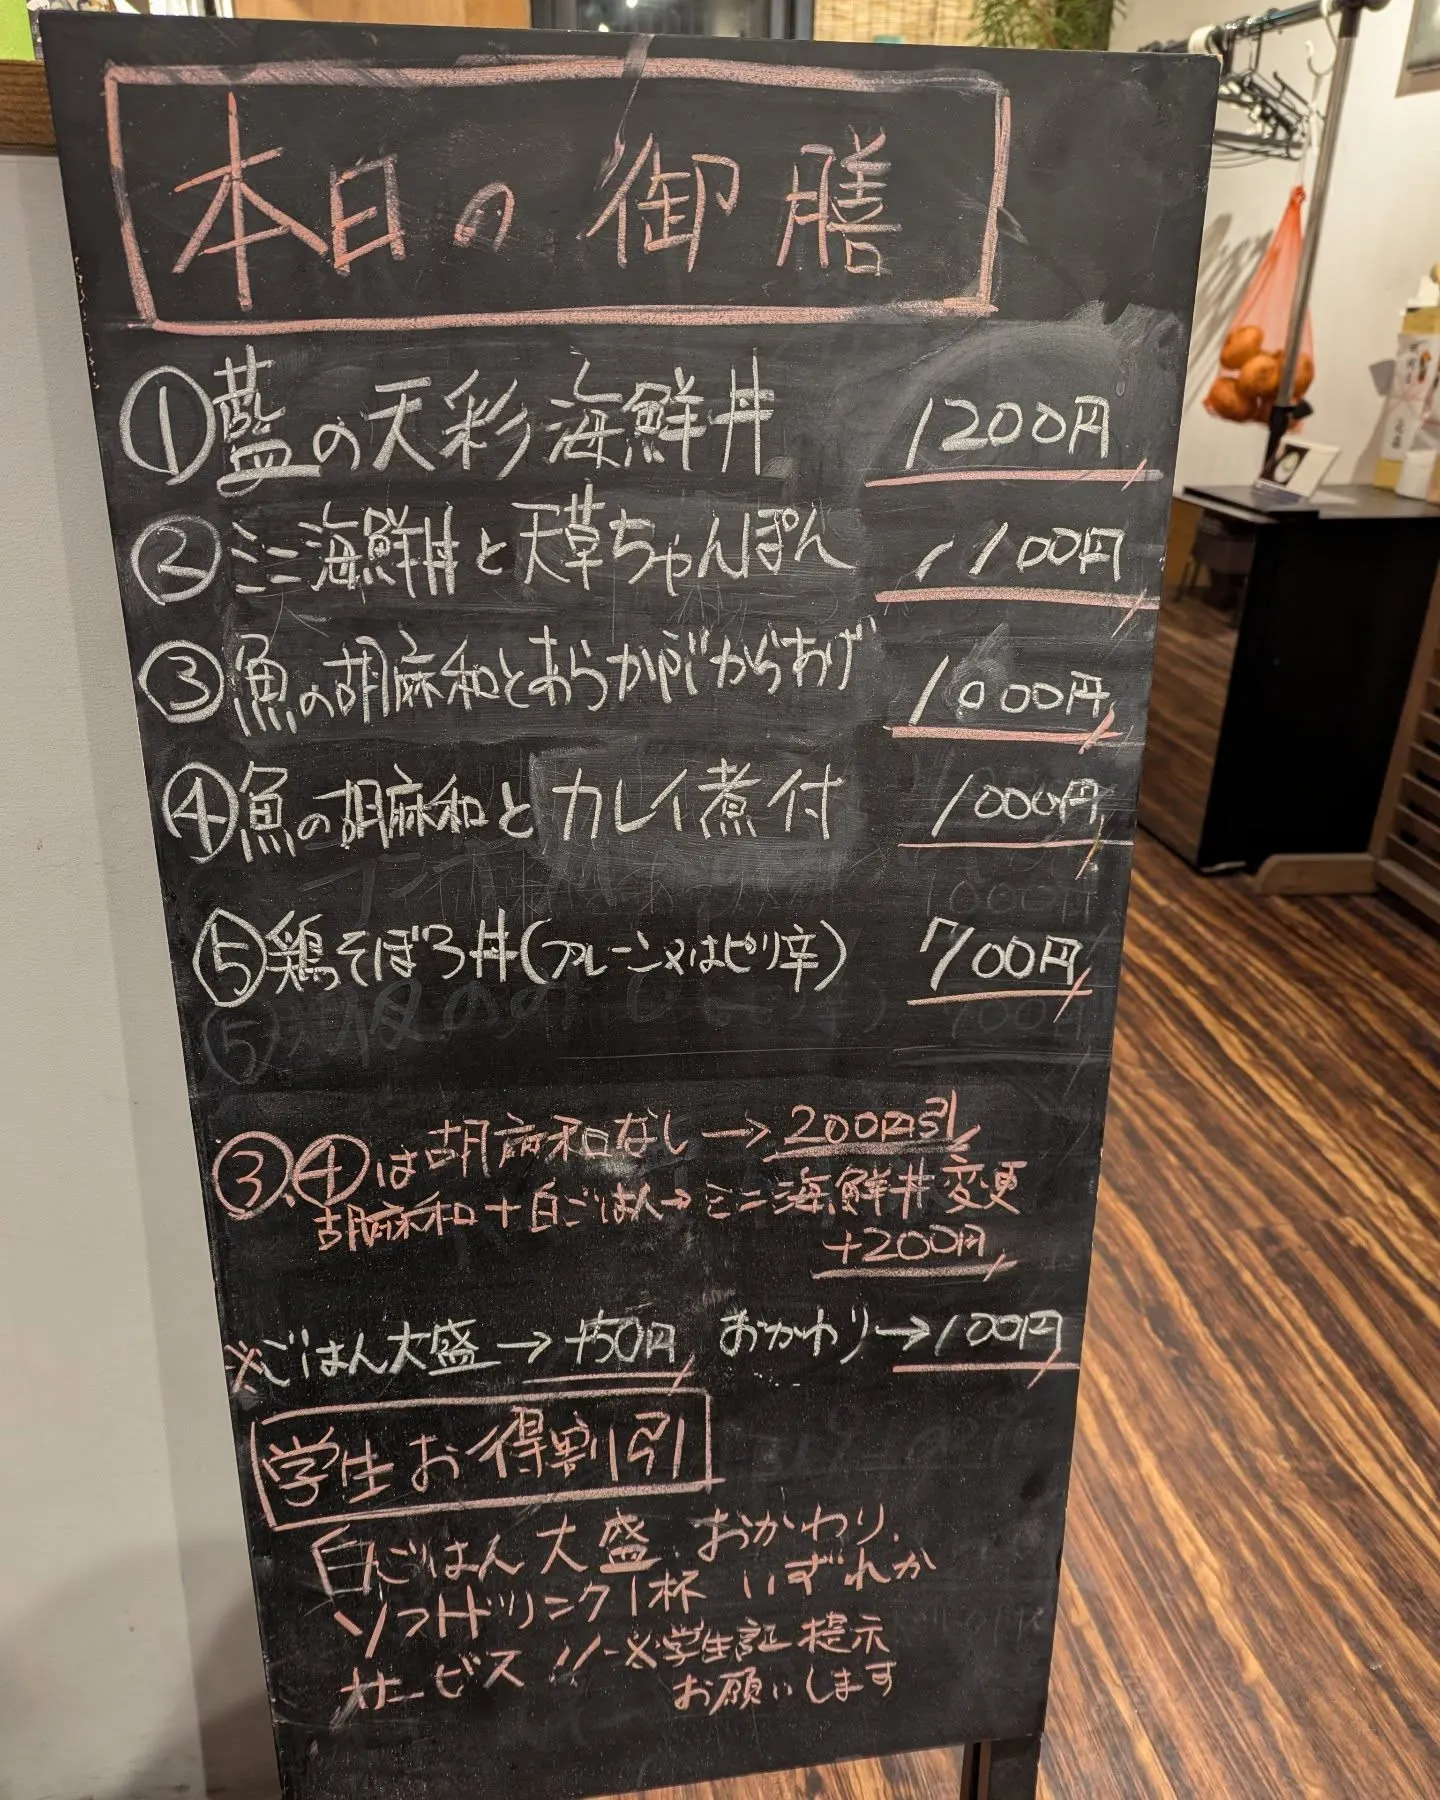 本日の御膳
①藍の天彩海鮮丼 1200円
②ミニ海鮮丼と天草ちゃんぽん 1100円
③魚の胡麻和とあらかぶからあげ 1000円
④魚の胡麻和とカレイ煮付 1000円
⑤鶏そぼろ丼(プレーン又はピリ辛) 700円
③、④は胡麻和なし→200円引
胡麻和+白ごはん→ミニ海鮮丼変更
+200円
※ごはん大盛→+50円 おかわり→100円
学生お得割引
白ごはん大盛、おかわり、
ソフトドリンク1杯 いずれか
サービス!!-※学生証提示
お願いします